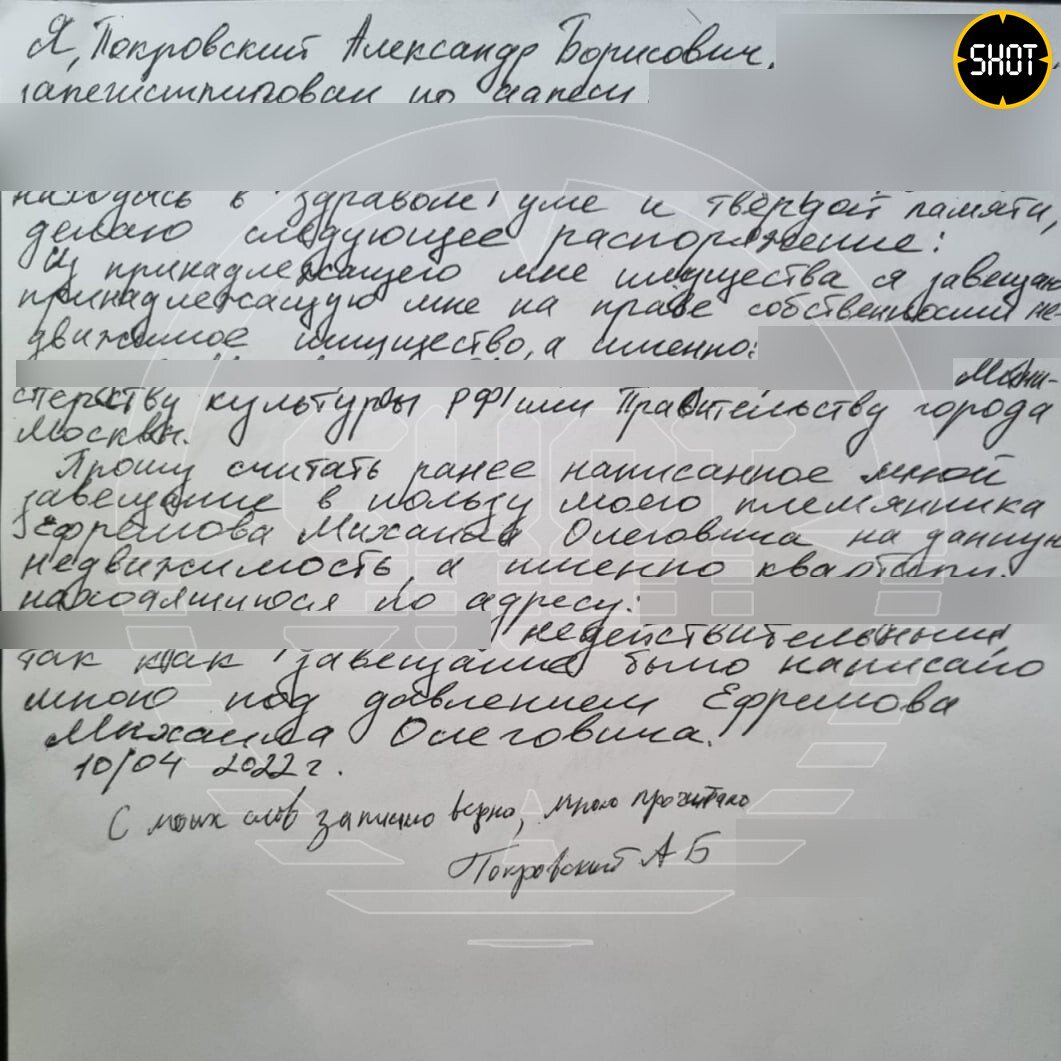 SHOT
Я, Покровский Александр Борисович,
зарегистрирован по адресу
находясь в здравом уме и твёрдой памяти,
делаю следующее распоряжение:
Из принадлежащего мне имущества я завещаю
принадлежащую мне на праве собственности не-
движимое имущество, а именно:
Мини-
стерству культуры РФ или Правительству города
Москвы.
Прошу считать ранее написанное мной
завещание в пользу моего племянника
Ефремова Михаила Олеговича на данную
недвижимость, а именно квартиру.
находящуюся по адресу:
недействительным,
так как завещание было написано
мною под давлением Ефремова
Михаила Олеговича.
10/04 2022 г.
С моих слов записано верно, мною прочитано
Покровский А Б